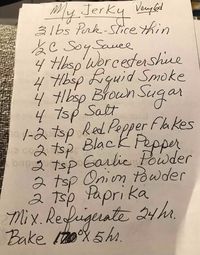 My Jerky Very Good
3 lbs Pork - Slice thin
1/2 C Soy Sauce
4 Tbsp Worcestershire
4 Tbsp Liquid Smoke
4 Tbsp Brown Sugar
4 Tsp Salt
1-2 tsp Red Pepper Flakes
2 tsp Black Pepper
2 tsp Garlic Powder
2 tsp Onion Powder
2 tsp Paprika
Mix. Refrigerate 24 hr.
Bake 170° x 5 hr.